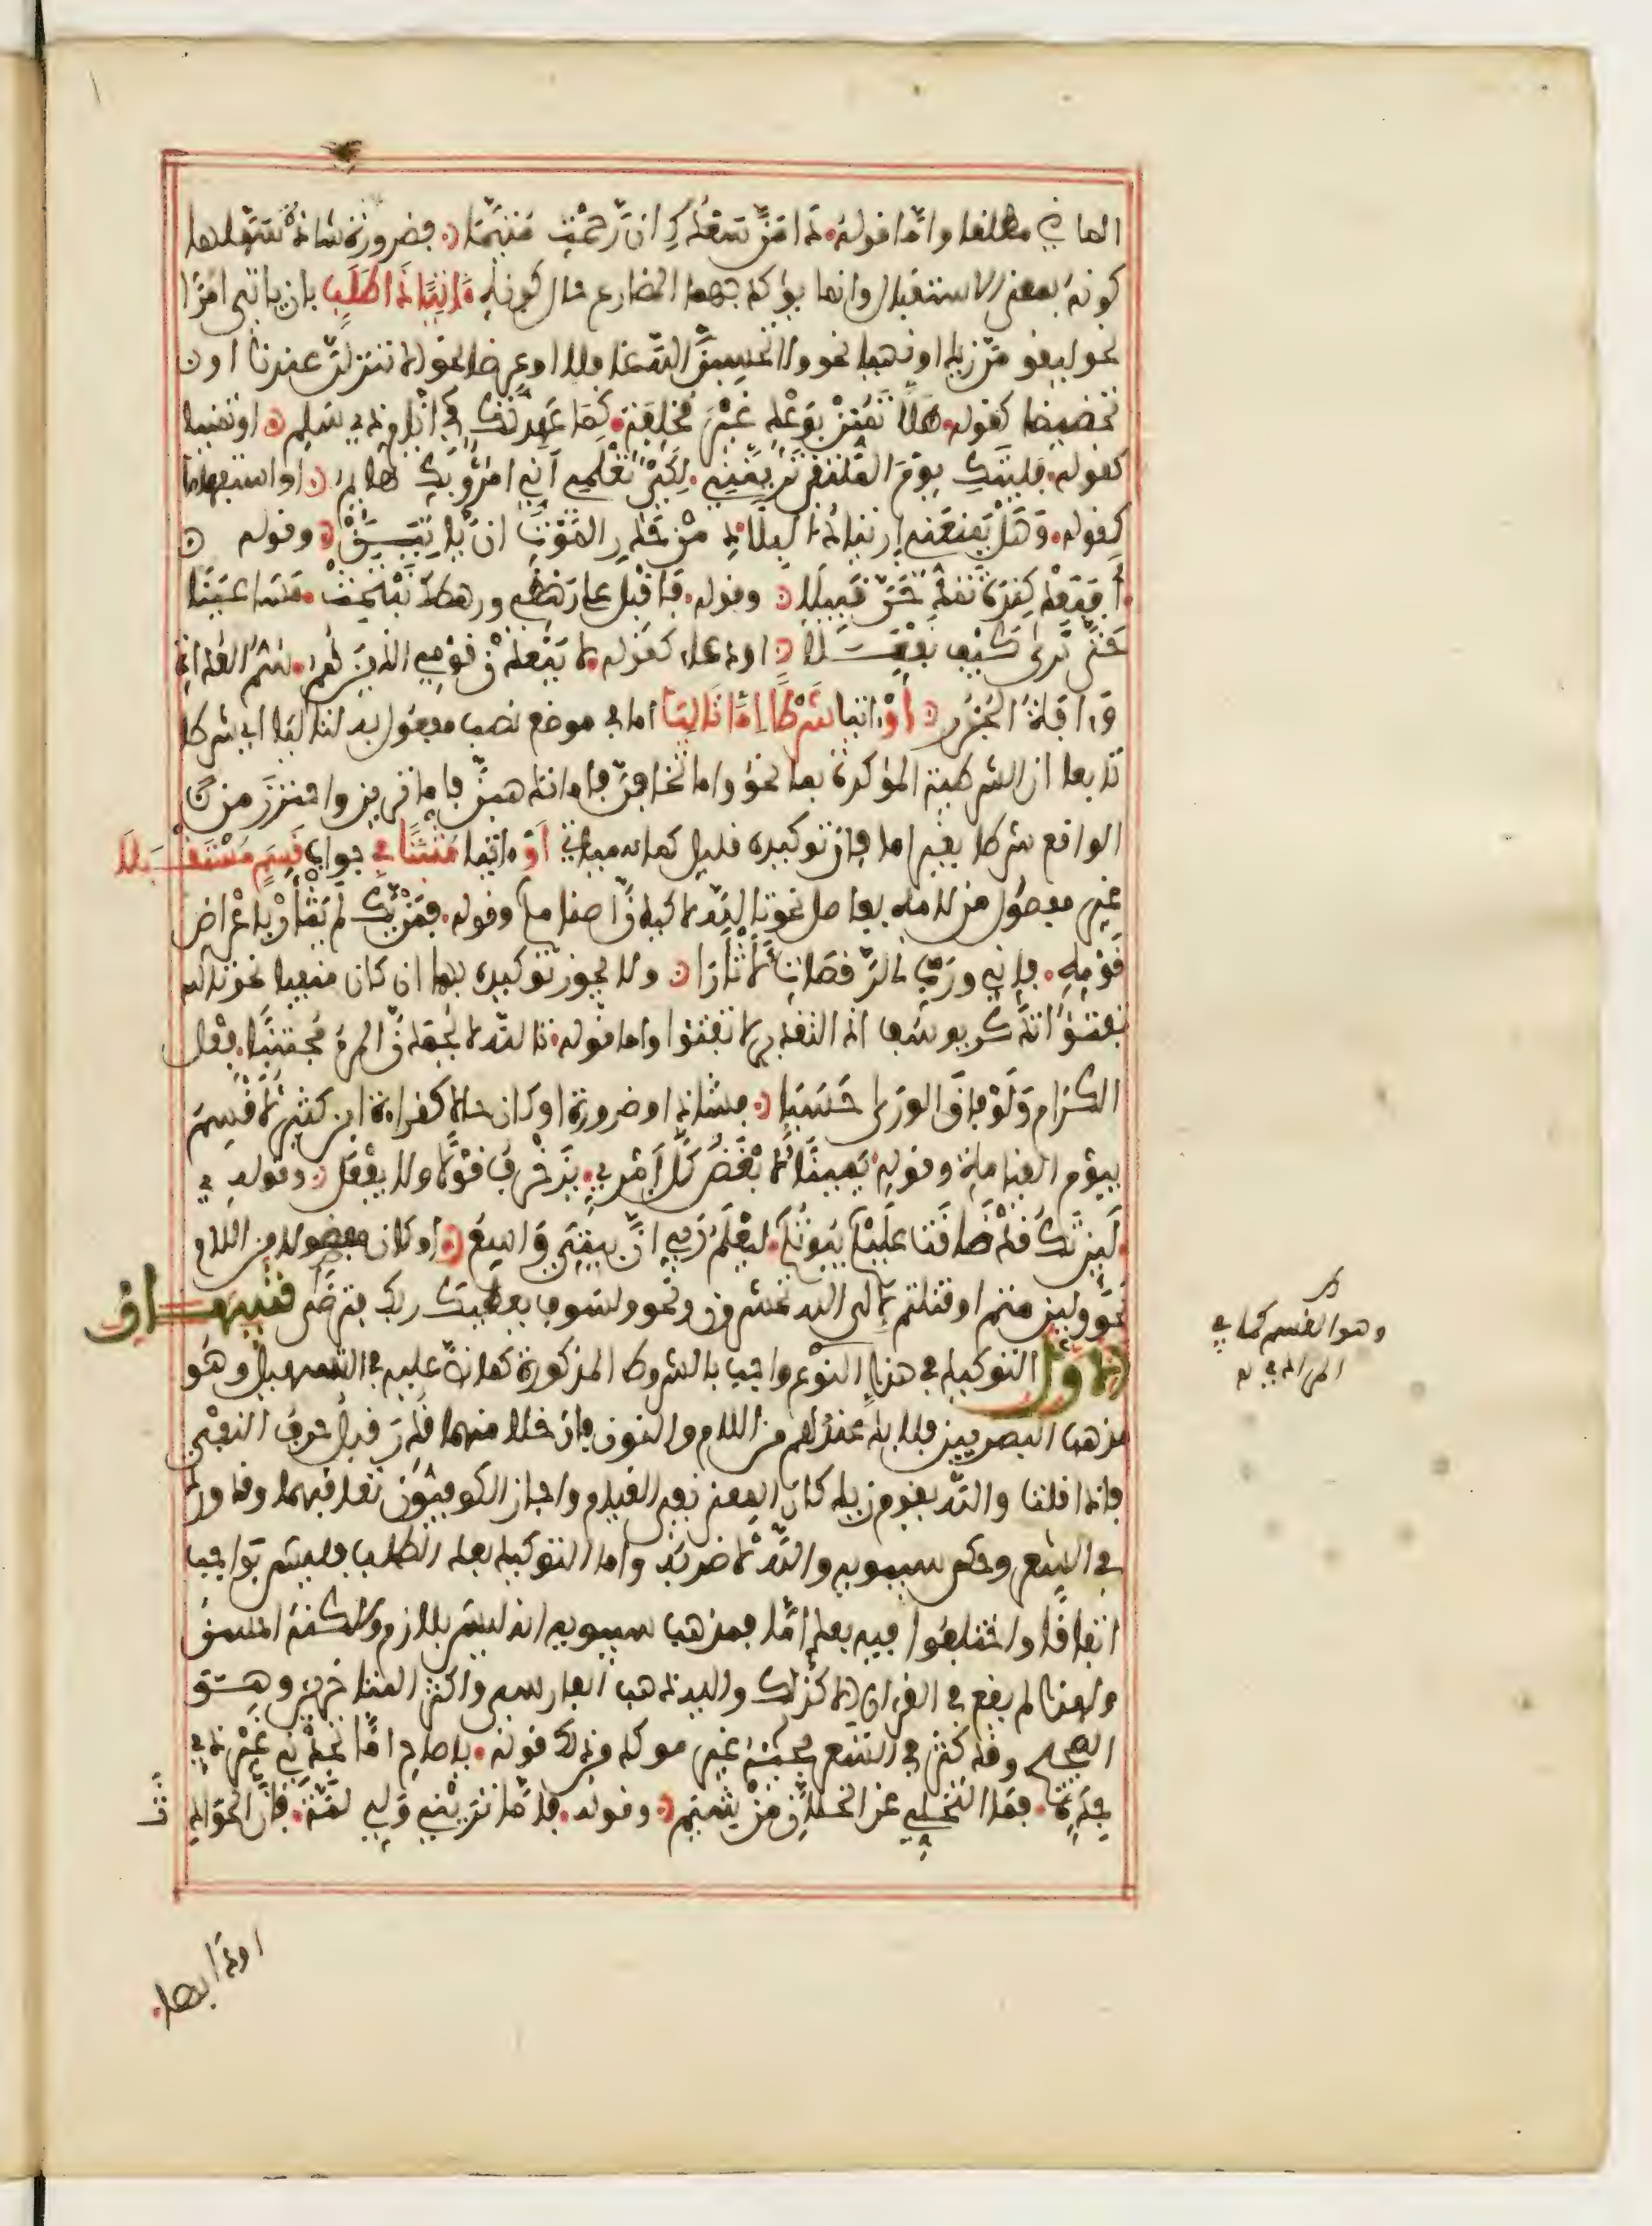 الماضي مطلقا واما قوله. دامن سعدك ان رحمت متيما. فضرورة شاذة سهلها
كونه بمعنى الاستقبال وانما يؤكد بهما المضارع حال كونه ءاتيا ذا طلب بان ياتي امرا
نحو ليقومن زيد او نهيا نحو ولا تحسبن الله غافلا او عرضا نحو الا تنزلن عندنا او
تحضيضا كقوله. هلا تمنن بوعد غير مخلفة. كما عهدتك في ايام ذي سلم. او تمنيا
كقوله. فليتك يوم الملتقى ترينني. لكي تعلمي اني امرؤ بك هايم. او استفهاما
كقوله. وهل يمنعني ارتيادي البلاد من حذر الموت ان ياتين. وقوله
. افبعد كندة تمدحن قبيلا. وقوله. فاقبل على رهطي ورهطك نبتحث. مساعينا
حتى ترى كيف نفعلا. او دعاء كقوله. لا يبعدن قومي الذين هم. سم العداة
وءافة الجزر. أو ءاتيا شرطا اما تاليا اما في موضع نصب مفعول به لتاليا اي شرطا
تابعا ان الشرطية المؤكدة بما نحو واما تخافن فاما نذهبن فاما ترين واحترز من
الواقع شرطا بغير اما فان توكيده قليل كما سياتي أو ءاتيا مثبتا في جواب قسم مستقبلا
غير مفصول من لامه بفاصل نحو تالله لاكيدن اصنامكم وقوله. فمن يك لم يثأر باعراض
قومه. فاني ورب الراقصات لاثارا. ولا يجوز توكيده بهما ان كان منفيا نحو تالله
تفتؤا تذكر يوسف اذ التقدير لا تفتؤا واما قوله. تالله لا يحمدن المرء مجتنبا. فعل
الكرام ولو فاق الورى حسبا. فشاذ او ضرورة او كان حالا كقراءة ابن كثير لاقسم
بيوم القيامة وقوله. يمينا لابغض كل امرئ. يزخرف قولا ولا يفعل. وقوله
. لين تك قد ضاقت عليكم بيوتكم. ليعلم ربي ان بيتي واسع. او كان مفصولا من اللام
نحو ولين متم او قتلتم لالى الله تحشرون ونحو ولسوف يعطيك ربك فترضى تنبيهان
الاول التوكيد في هذا النوع واجب بالشروط المذكورة كما نص عليه في التسهيل وهو
مذهب البصريين فلا بد عندهم من اللام والنون فان خلا منهما قدر قبل حرف النفي
فاذا قلت والله يقوم زيد كان المعنى نفي القيام واجاز الكوفيون تعاقبهما وقد ورد
في الشعر وحكى سيبويه والله لاضربه واما التوكيد بعد الطلب فليس بواجب
اتفاقا واختلفوا فيه بعد اما فمذهب سيبويه انه ليس بلازم ولكنه احسن
ولهذا لم يقع في القران الا كذلك واليه ذهب الفارسي واكثر المتاخرين وهو
الصحيح وقد كثر في الشعر مجيئه غير موكد من ذلك قوله. يا صاح اما تجدني غير ذي
جدة. فما التخلي عن الخلان من شيمي. وقوله. فاما تريني ولي لمة. فان الحوادث
اودى بها.
وهو القسم كما في